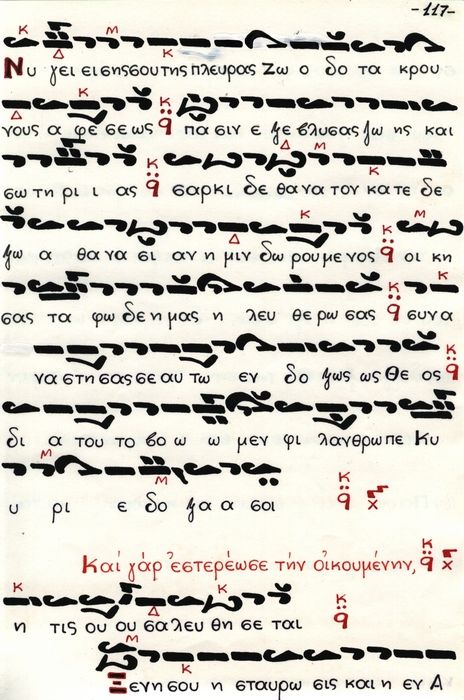 -117-
Νυ γει εισησσουτης πλευρας Ζω ο δο τα κρου
νους α φε σε ως πα σιν ε ξε βλυσας ζω ης και
σω τη ρι ι ας σαρκι δε θανατον κατε δε
ξω α θα να σι αν η μιν δω ρουμενος οι κη
σας τα φω δε η μας η λευ θε ρω σας συνα
να στη σας σε αυ τω εν δο ξως ως Θε ος
δι α του το βοω ω μεν φι λανθρωπε Κυ
υ ρι ε δο ξα α σοι
Καί γάρ ἐστερέωσε τήν οἰκουμένην,
η τις ου ου σα λευ θη σε ται
Ξενησου η σταυρω σις και η εν Α